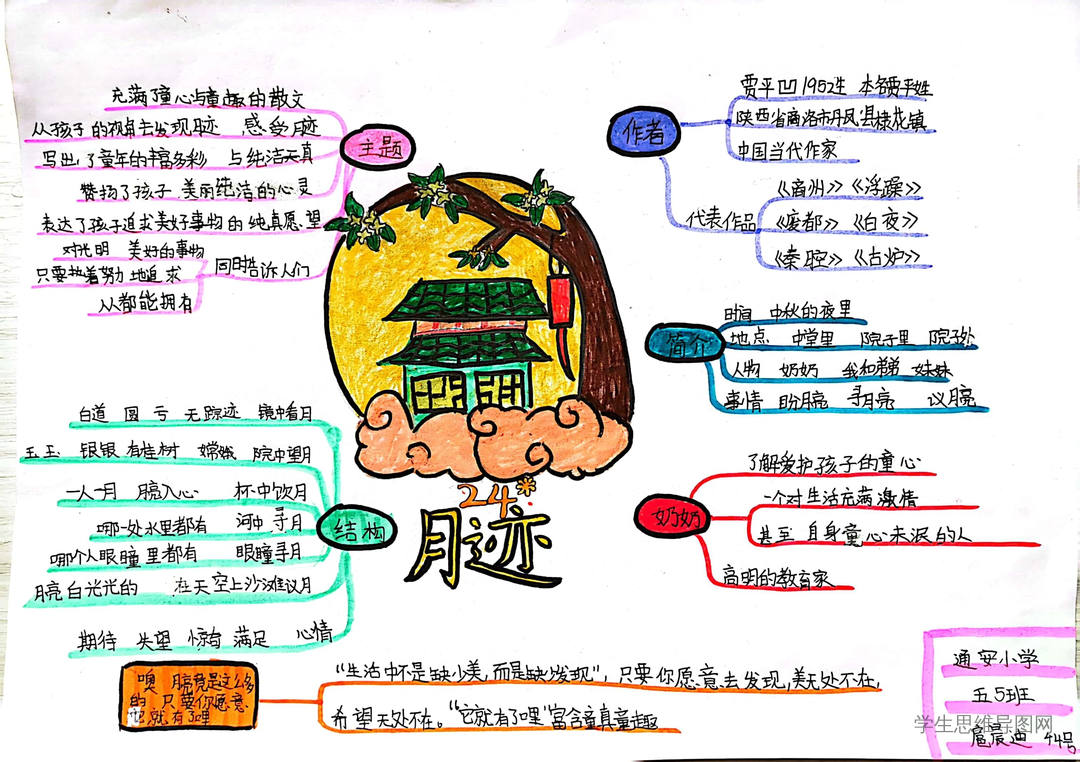 主题
充满了童心与童趣的散文
从孩子的视角去发现月迹 感受月迹
写出了童年的丰富多彩 与纯洁天真
赞扬了孩子美丽纯洁的心灵
表达了孩子追求美好事物的纯真愿望
同时告诉人们
对光明 美好的事物
只要执着努力地追求
从都能拥有
作者
贾平凹1952生 本名贾平娃
陕西省商洛市丹凤县棣花镇
中国当代作家
代表作品
《商州》《浮躁》
《废都》《白夜》
《秦腔》《古炉》
简介
时间 中秋的夜里
地点 中堂里 院子里 院子外
人物 奶奶 我和弟弟 妹妹
事情 盼月亮 寻月亮 议月亮
24*
月迹
结构
白道 圆 亏 无踪迹 镜中看月
玉玉 银银 有桂树 嫦娥 院中望月
一人一月 月亮入心 杯中饮月
哪一处水里都有 河中寻月
哪个人眼瞳里都有 眼瞳寻月
月亮白光光的 在天空上沙滩议月
期待 失望 惊奇 满足 心情
奶奶
了解爱护孩子的童心
一个对生活充满激情
甚至自身童心未泯的人
高明的教育家
噢 月亮竟是这么多
的,只要你愿意,
它就有了哩
"生活中不是缺少美,而是缺少发现",只要你愿意去发现,美无处不在,
希望无处不在。"它就有了哩"富含童真童趣
通安小学
五5班
扈宸迪 44号
学生思维导图网